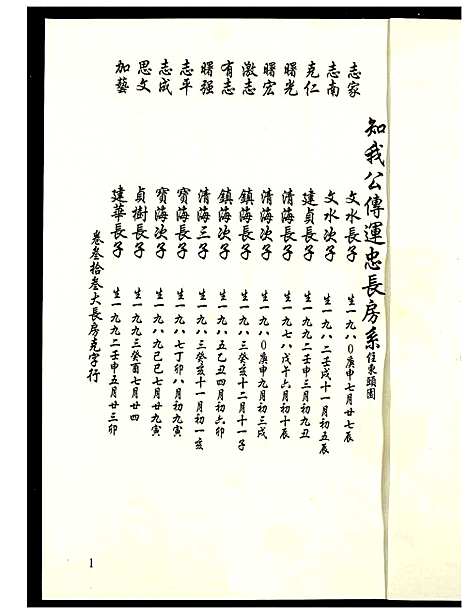 知我公傳運忠長房系 住東頭園
志家 文水長子 生一九八0庚申七月廿七辰
志南 文水次子 生一九八二壬戌十一月初五辰
克仁 建貞長子 生一九九二壬申三月初九丑
曙光 清海長子 生一九七八戊午六月初十辰
曙宏 清海次子 生一九八0庚申九月初三戌
激志 鎮海長子 生一九八三癸亥十二月十一子
有志 鎮海次子 生一九八五乙丑四月初六卯
曙强 清海三子 生一九八三癸亥十一月初一亥
志平 寶海長子 生一九八七丁卯八月初九寅
志成 寶海次子 生一九八九己巳七月廿九寅
思文 貞樹長子 生一九九三癸酉七月廿四
加藝 建華長子 生一九九二壬申五月廿三卯
卷叁拾叁大長房克字行
1